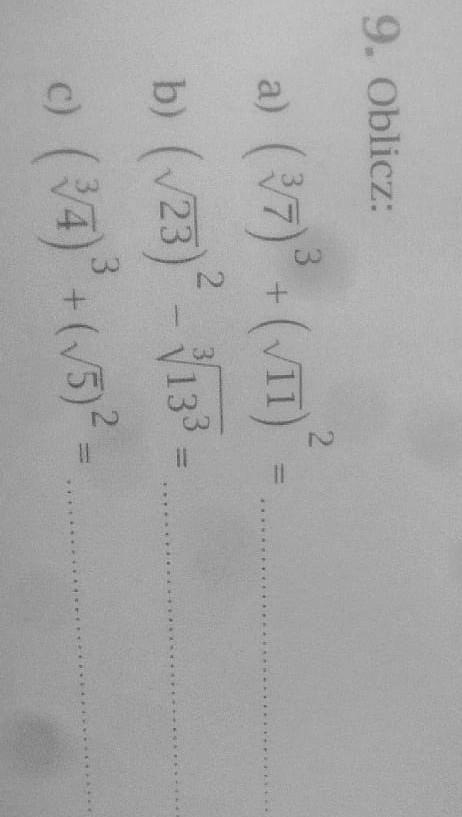 9. Oblicz:
a) (∛7)³ + (√11)² = ..............................
b) (√23)² − ∛13³ = ..............................
c) (∛4)³ + (√5)² = ..............................